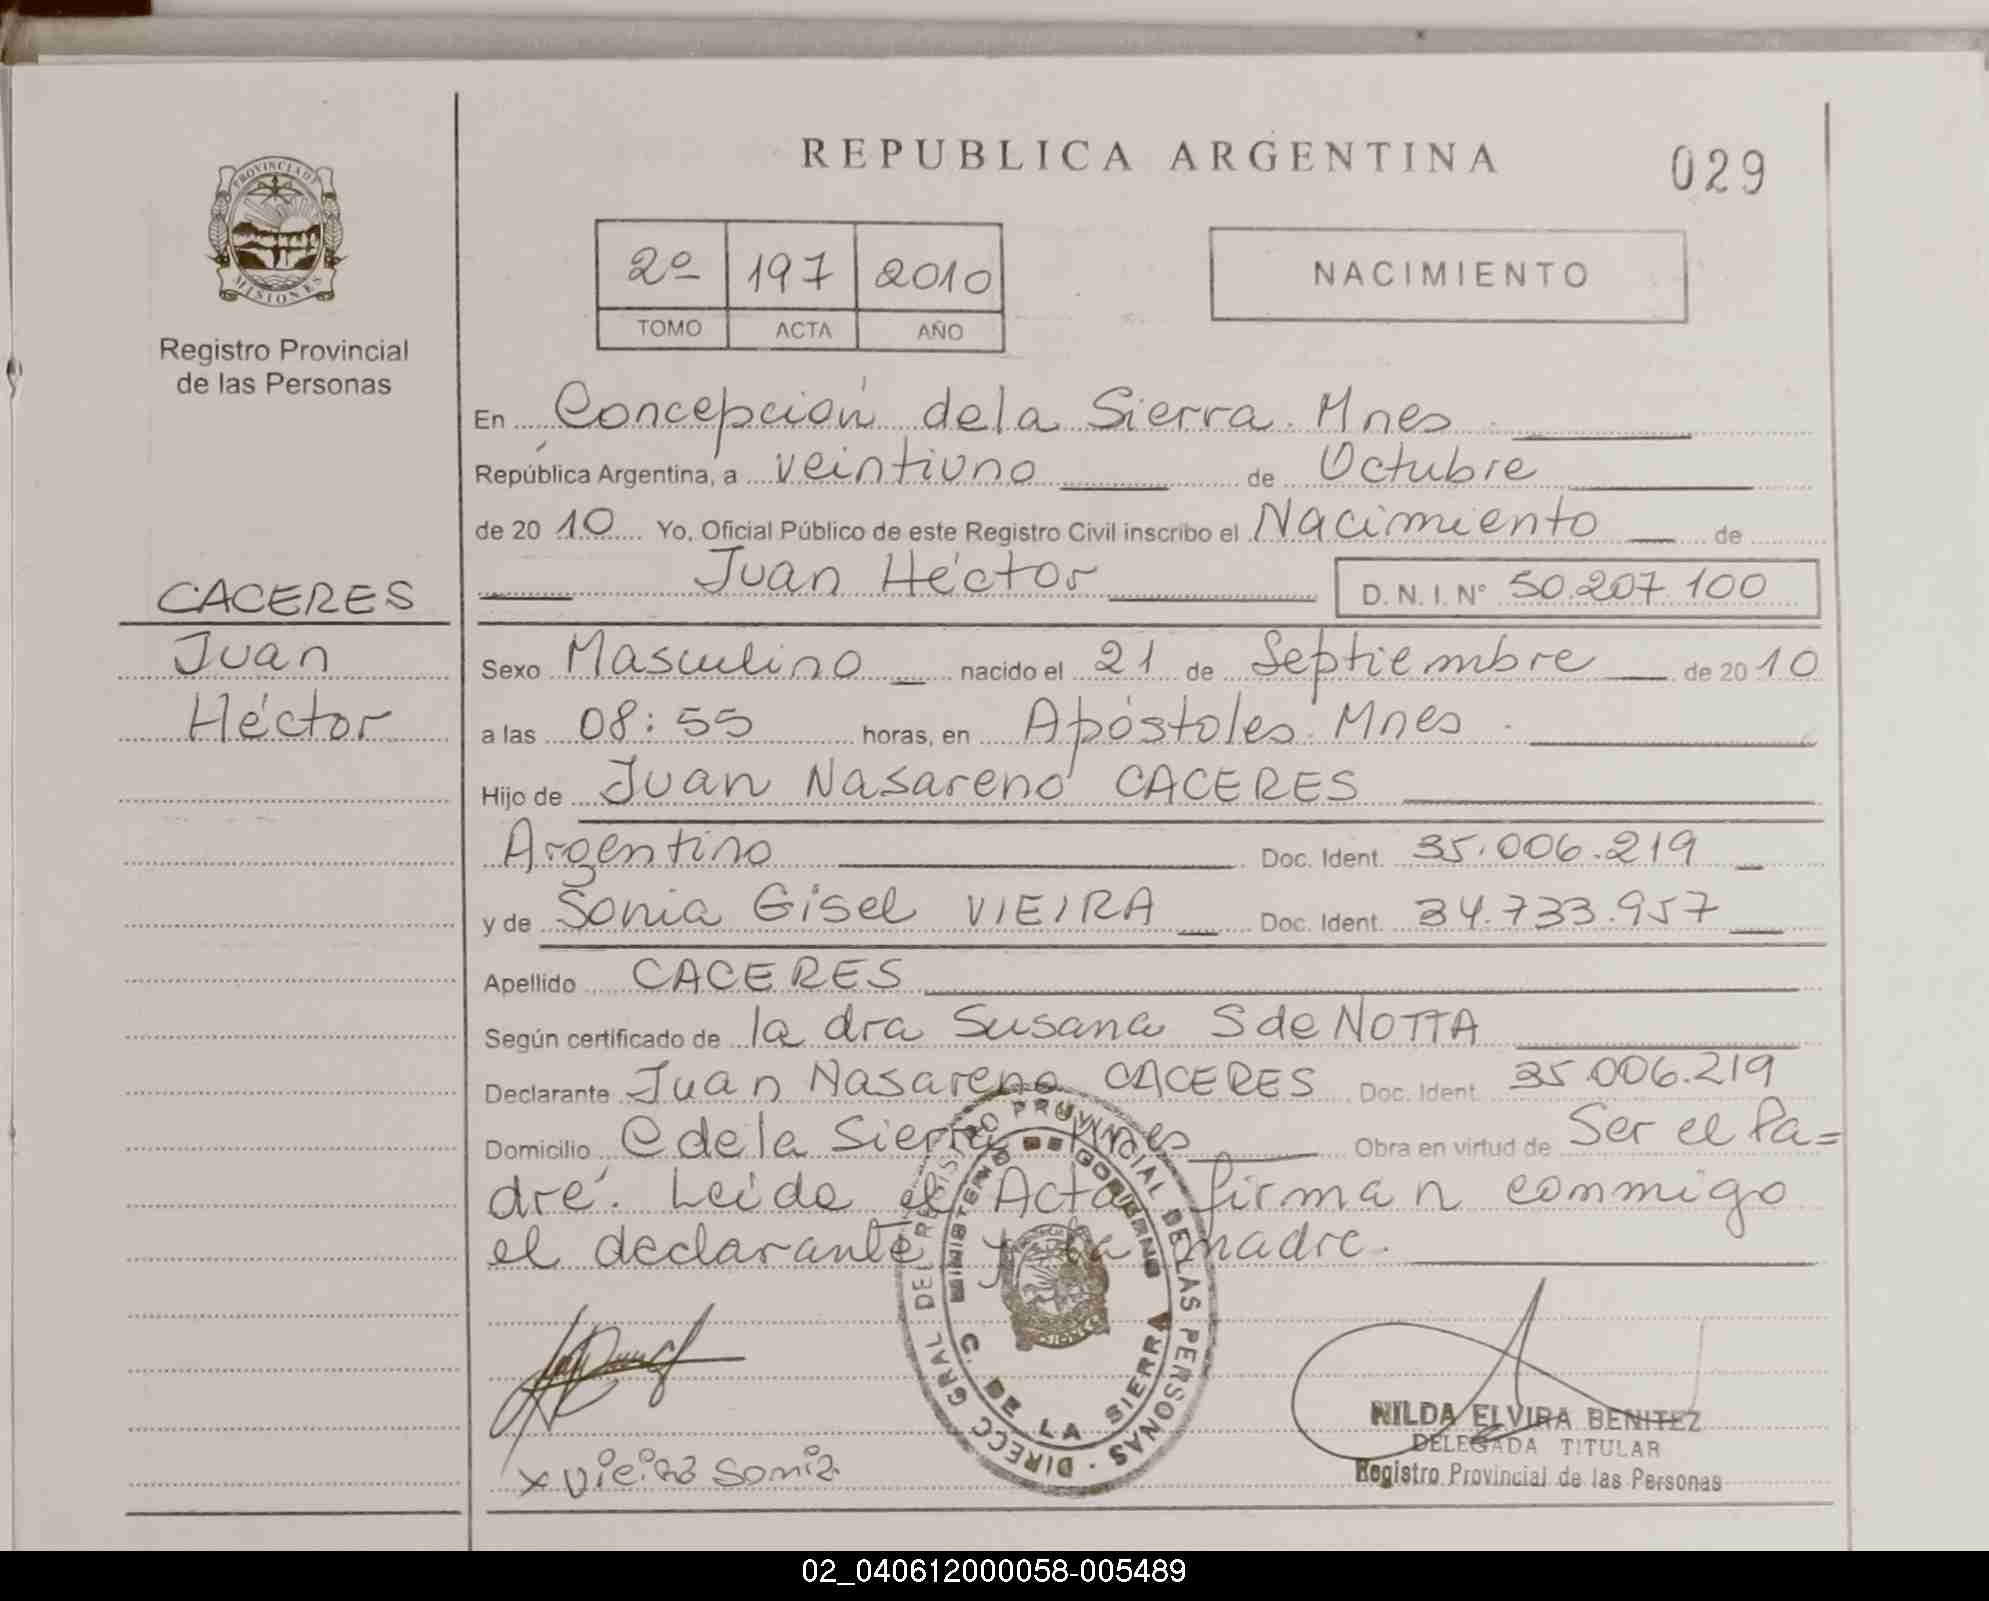 REPUBLICA ARGENTINA
029
PROVINCIA DE
MISIONES
Registro Provincial
de las Personas
2º 197 2010
TOMO ACTA AÑO
NACIMIENTO
CACERES
Juan
Héctor
En Concepción de la Sierra. Mnes.
República Argentina, a veintiuno de Octubre
de 2010 Yo, Oficial Público de este Registro Civil inscribo el Nacimiento de
Juan Héctor D. N. I. N° 50.207.100
Sexo Masculino nacido el 21 de Septiembre de 2010
a las 08:55 horas, en Apóstoles. Mnes.
Hijo de Juan Nasareno CACERES
Argentino Doc. Ident. 35.006.219
y de Sonia Gisel VIEIRA Doc. Ident. 34.733.957
Apellido CACERES
Según certificado de la dra Susana S de NOTTA
Declarante Juan Nasareno CACERES Doc. Ident. 35.006.219
Domicilio C de la Sierra Mnes Obra en virtud de Ser el Pa=
dre. Leida el Acta firman conmigo
el declarante y la madre.
DIRECC GRAL DEL REGISTRO PROVINCIAL DE LAS PERSONAS
MINISTERIO DE GOBIERNO
C. DE LA SIERRA
x vieira sonia
NILDA ELVIRA BENITEZ
DELEGADA TITULAR
Registro Provincial de las Personas
02_040612000058-005489